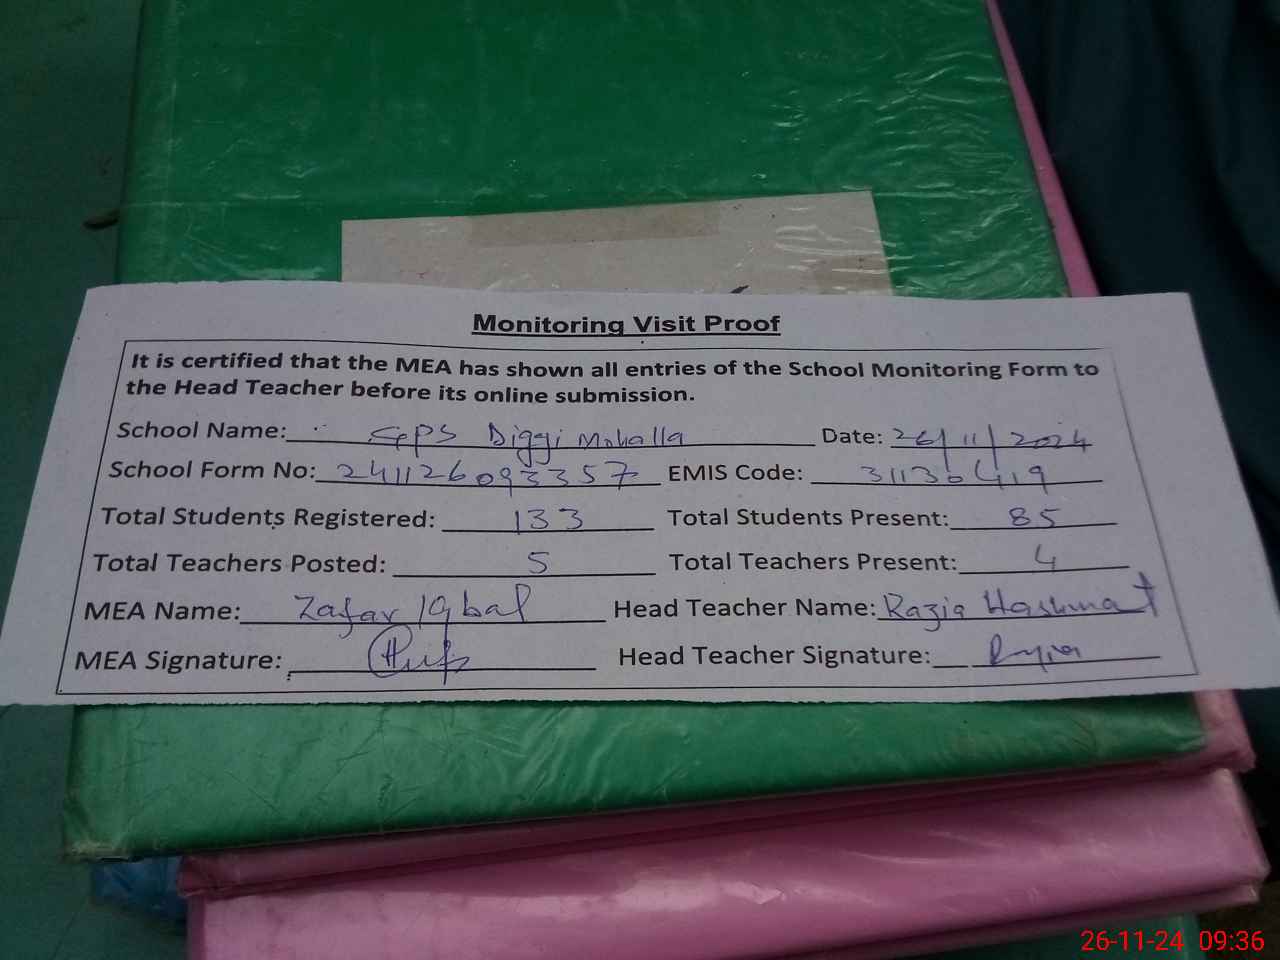 Monitoring Visit Proof
It is certified that the MEA has shown all entries of the School Monitoring Form to
the Head Teacher before its online submission.
School Name: GPS Diggi Mohalla Date: 26/11/2024
School Form No: 241126093357 EMIS Code: 31136419
Total Students Registered: 133 Total Students Present: 85
Total Teachers Posted: 5 Total Teachers Present: 4
MEA Name: Zafar Iqbal Head Teacher Name: Razia Hashmat
MEA Signature: Head Teacher Signature:
26-11-24 09:36